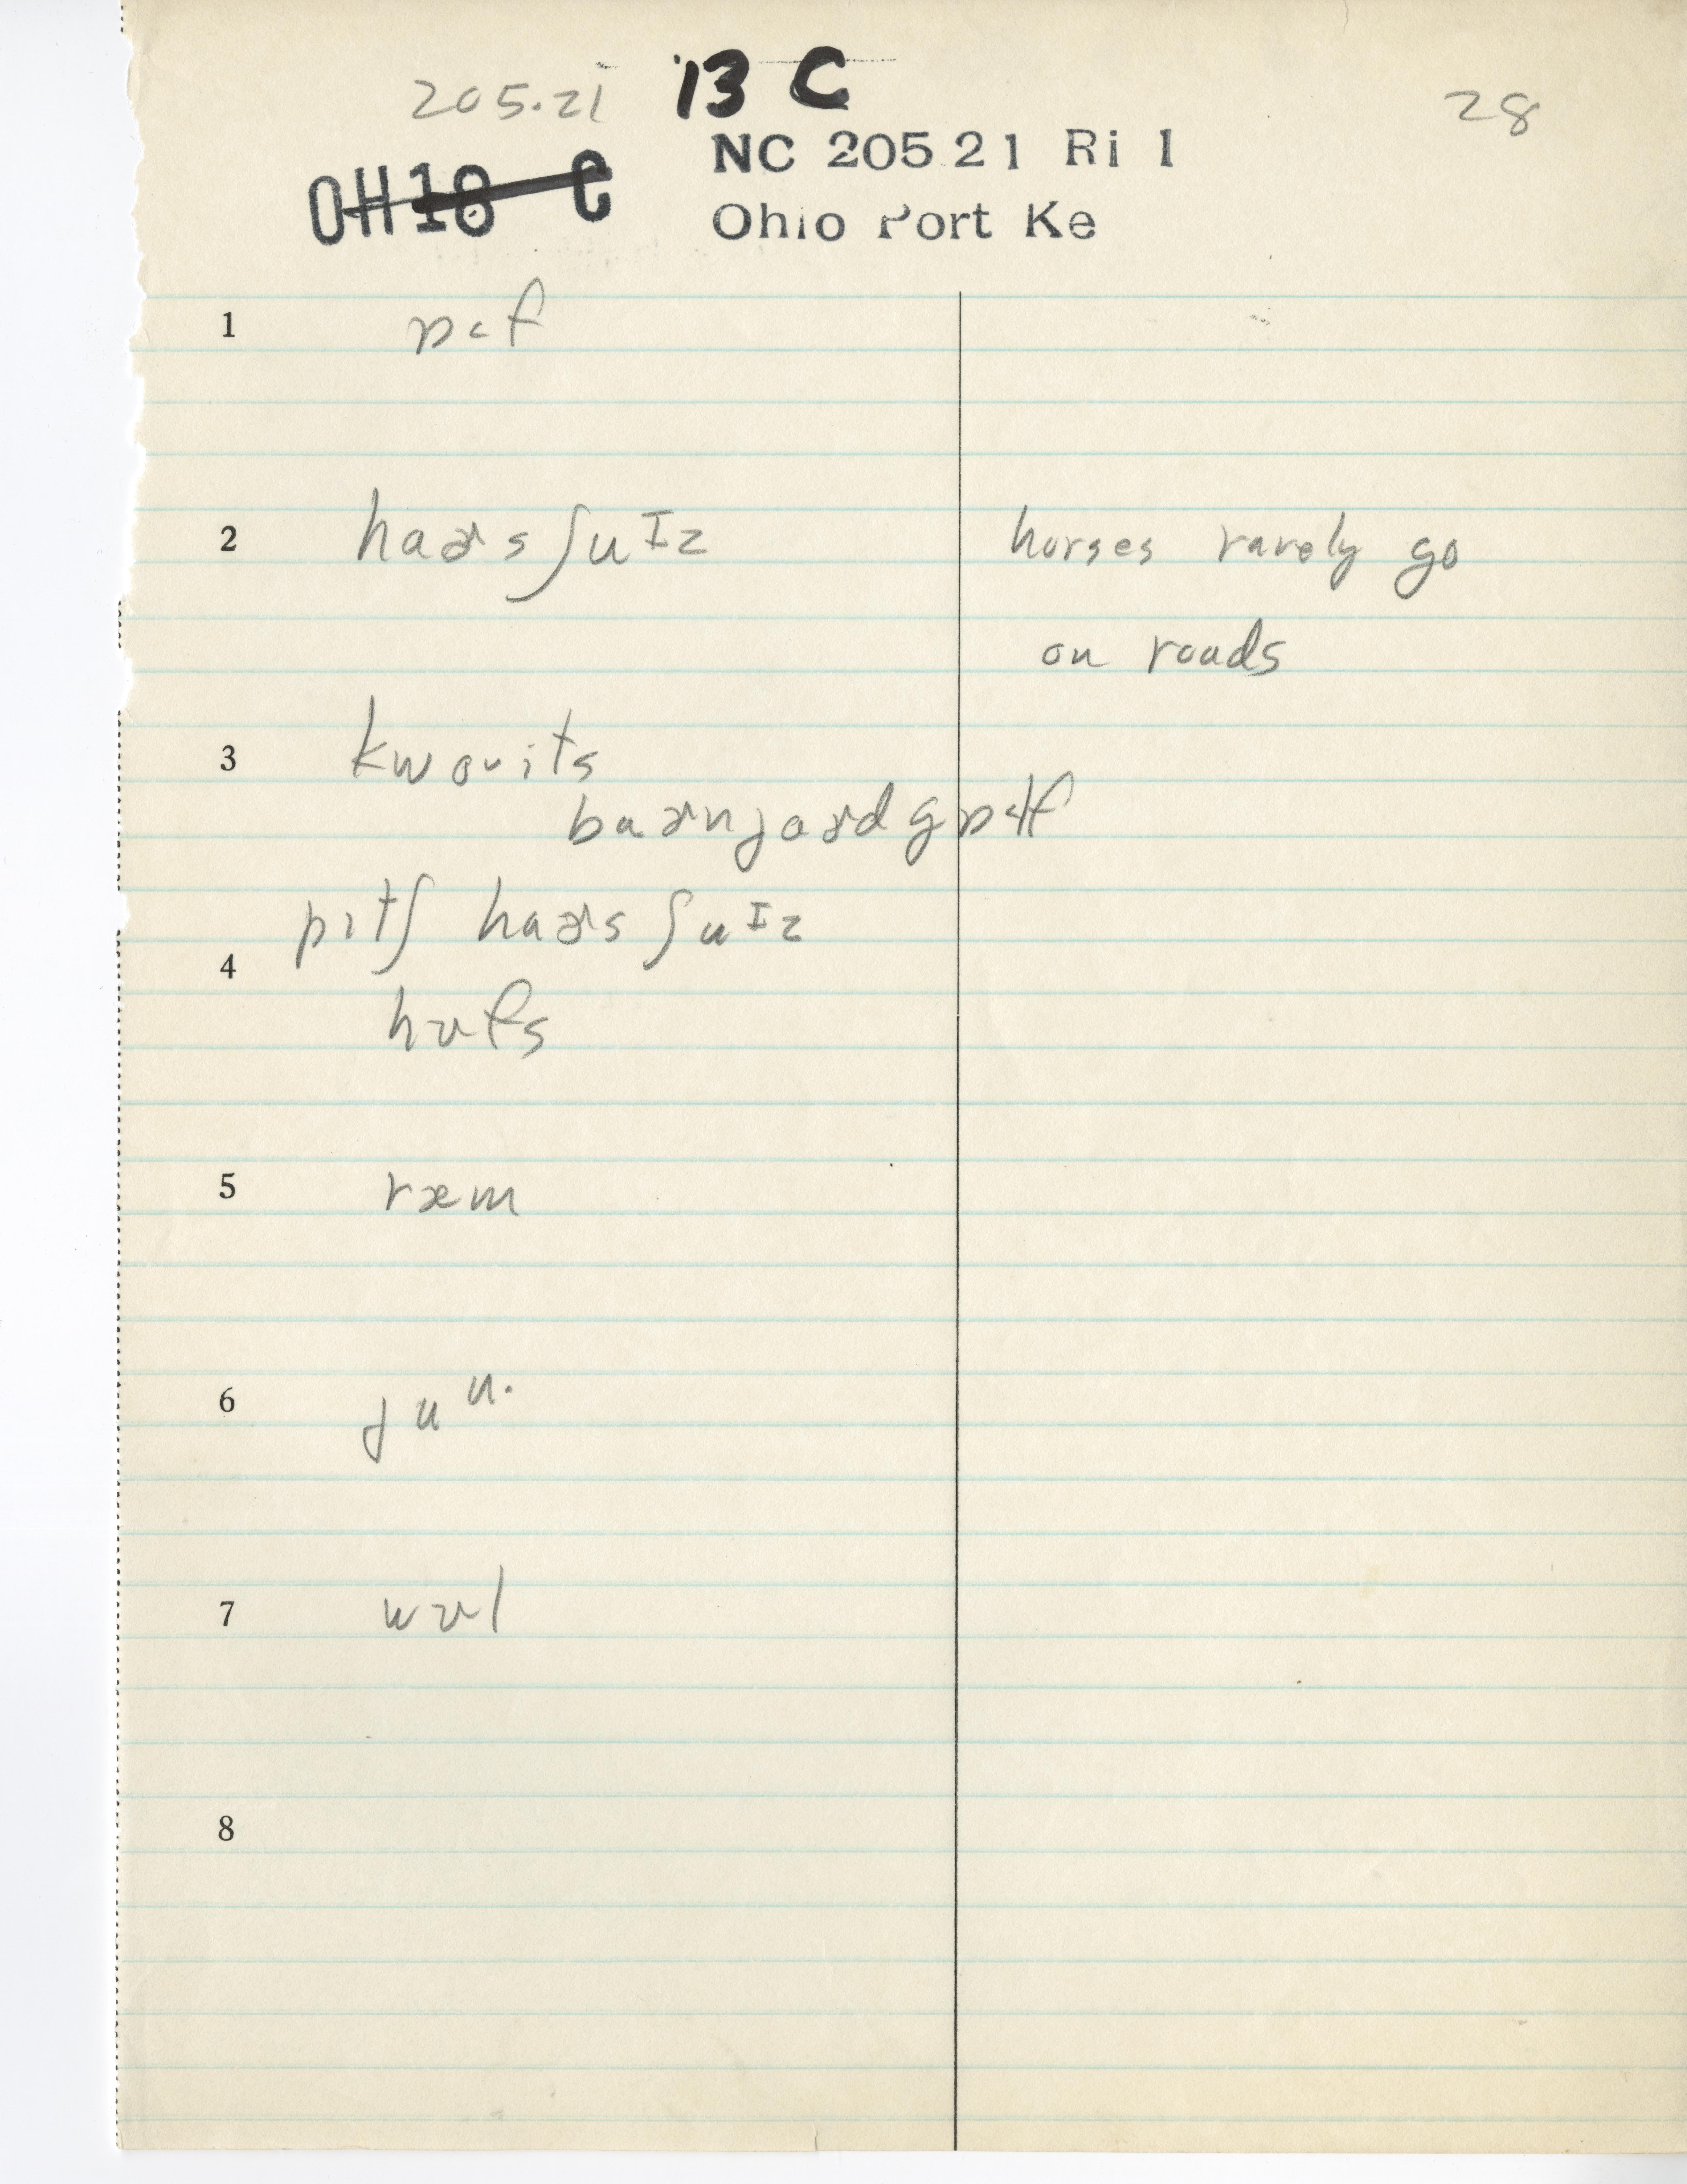 205.21 13 C 28
OH 18 C NC 205 21 Ri 1
Ohio Port Ke
1
2 haɚs ʃuɪz horses rarely go
on roads
3 kwoits
4 pitʃ haɚs ʃuɪz
hʊfs
5 ræm
6 juᵘ·
7 wʊl
8